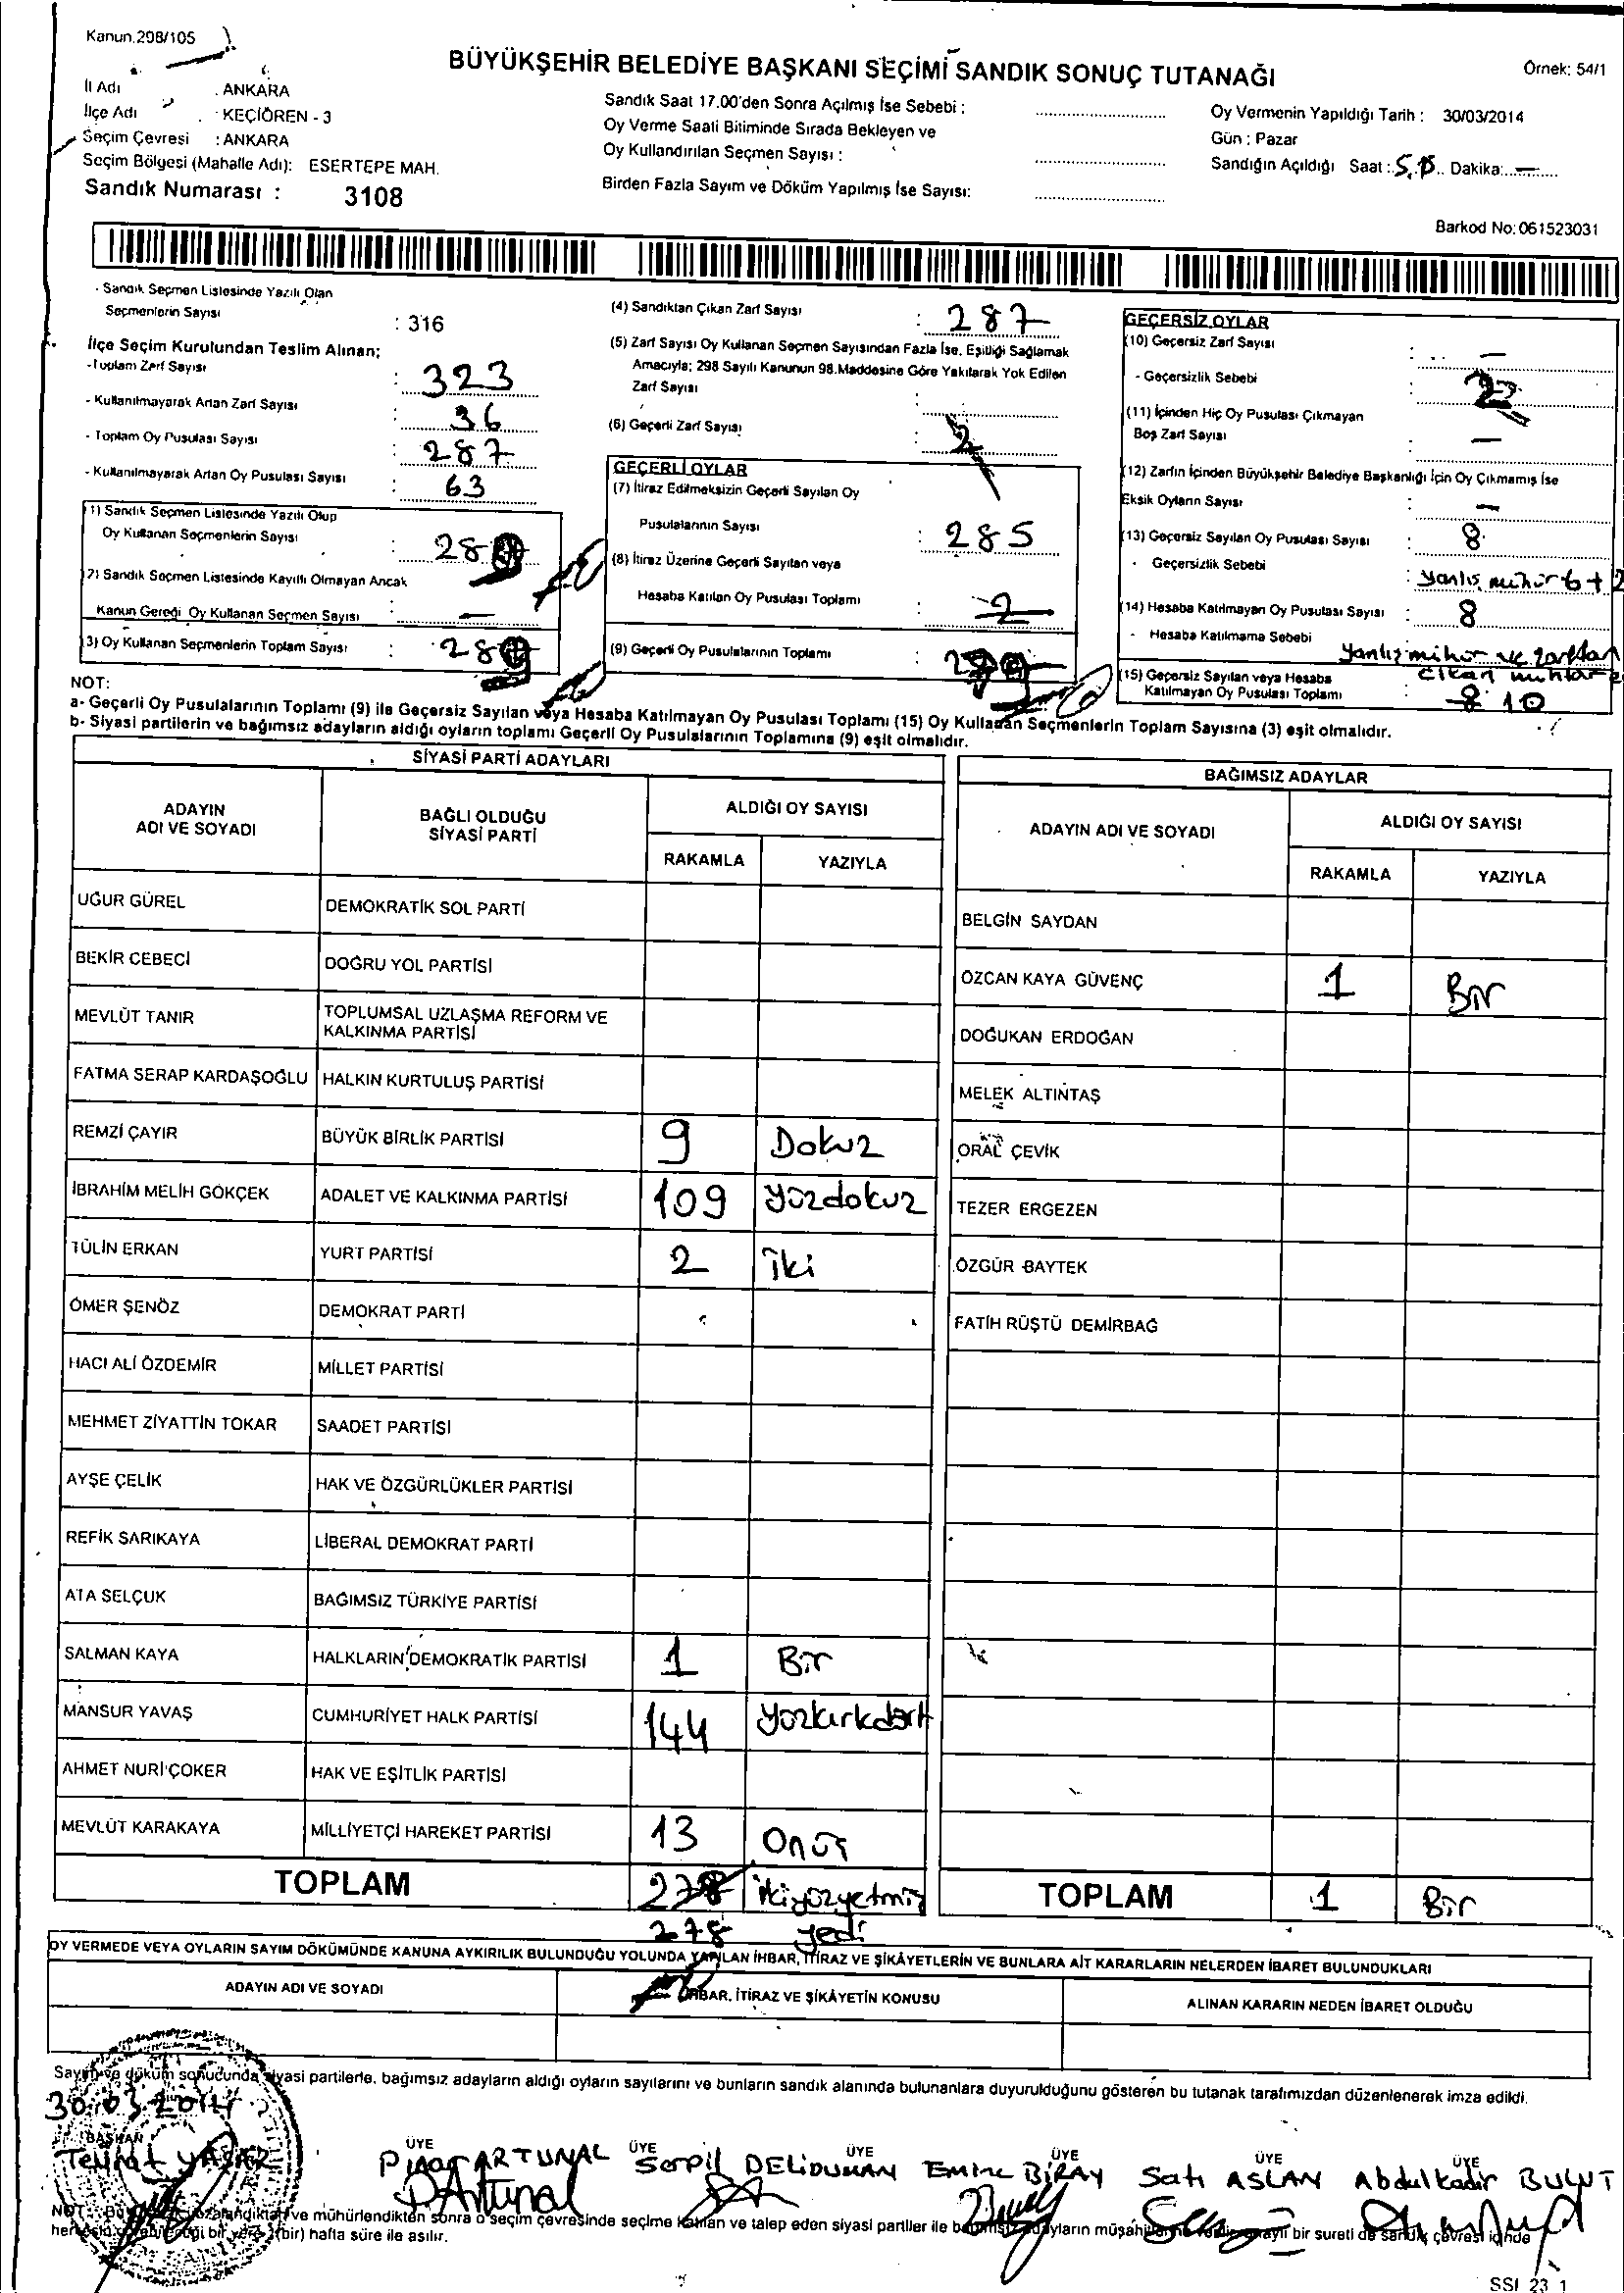 Kanun.298/105
BÜYÜKŞEHİR BELEDİYE BAŞKANI SEÇİMİ SANDIK SONUÇ TUTANAĞI
Örnek: 54/1
İl Adı : ANKARA
İlçe Adı : KEÇİÖREN - 3
Seçim Çevresi : ANKARA
Seçim Bölgesi (Mahalle Adı): ESERTEPE MAH.
Sandık Numarası : 3108
Sandık Saat 17.00'den Sonra Açılmış İse Sebebi :
Oy Verme Saati Bitiminde Sırada Bekleyen ve
Oy Kullandırılan Seçmen Sayısı :
Birden Fazla Sayım ve Döküm Yapılmış İse Sayısı:
Oy Vermenin Yapıldığı Tarih : 30/03/2014
Gün : Pazar
Sandığın Açıldığı Saat : Dakika: —
Barkod No: 061523031
- Sandık Seçmen Listesinde Yazılı Olan
Seçmenlerin Sayısı : 316
İlçe Seçim Kurulundan Teslim Alınan;
- Toplam Zarf Sayısı : 323
- Kullanılmayarak Artan Zarf Sayısı : 36
- Toplam Oy Pusulası Sayısı : 287
- Kullanılmayarak Artan Oy Pusulası Sayısı : 63
(1) Sandık Seçmen Listesinde Yazılı Olup
Oy Kullanan Seçmenlerin Sayısı :
(2) Sandık Seçmen Listesinde Kayıtlı Olmayan Ancak
Kanun Gereği Oy Kullanan Seçmen Sayısı : —
(3) Oy Kullanan Seçmenlerin Toplam Sayısı :
(4) Sandıktan Çıkan Zarf Sayısı : 287
(5) Zarf Sayısı Oy Kullanan Seçmen Sayısından Fazla İse, Eşitliği Sağlamak
Amacıyla; 298 Sayılı Kanunun 98.Maddesine Göre Yakılarak Yok Edilen
Zarf Sayısı :
(6) Geçerli Zarf Sayısı :
GEÇERLİ OYLAR
(7) İtiraz Edilmeksizin Geçerli Sayılan Oy
Pusulalarının Sayısı : 285
(8) İtiraz Üzerine Geçerli Sayılan veya
Hesaba Katılan Oy Pusulası Toplamı : 2
(9) Geçerli Oy Pusulalarının Toplamı :
GEÇERSİZ OYLAR
(10) Geçersiz Zarf Sayısı : —
- Geçersizlik Sebebi :
(11) İçinden Hiç Oy Pusulası Çıkmayan
Boş Zarf Sayısı : —
(12) Zarfın İçinden Büyükşehir Belediye Başkanlığı İçin Oy Çıkmamış İse
Eksik Oyların Sayısı : —
(13) Geçersiz Sayılan Oy Pusulası Sayısı : 8
- Geçersizlik Sebebi : yanlış mühür 6+2
(14) Hesaba Katılmayan Oy Pusulası Sayısı : 8
- Hesaba Katılmama Sebebi yanlış mühür ve zarftan
çıkan muhtar
(15) Geçersiz Sayılan veya Hesaba
Katılmayan Oy Pusulası Toplamı : 8 10
NOT:
a- Geçerli Oy Pusulalarının Toplamı (9) ile Geçersiz Sayılan veya Hesaba Katılmayan Oy Pusulası Toplamı (15) Oy Kullanan Seçmenlerin Toplam Sayısına (3) eşit olmalıdır.
b- Siyasi partilerin ve bağımsız adayların aldığı oyların toplamı Geçerli Oy Pusulalarının Toplamına (9) eşit olmalıdır.
SİYASİ PARTİ ADAYLARI
ADAYIN ADI VE SOYADI BAĞLI OLDUĞU SİYASİ PARTİ ALDIĞI OY SAYISI
RAKAMLA YAZIYLA
UĞUR GÜREL DEMOKRATİK SOL PARTİ
BEKİR CEBECİ DOĞRU YOL PARTİSİ
MEVLÜT TANIR TOPLUMSAL UZLAŞMA REFORM VE KALKINMA PARTİSİ
FATMA SERAP KARDAŞOĞLU HALKIN KURTULUŞ PARTİSİ
REMZİ ÇAYIR BÜYÜK BİRLİK PARTİSİ 9 Dokuz
İBRAHİM MELİH GÖKÇEK ADALET VE KALKINMA PARTİSİ 109 yüzdokuz
TÜLİN ERKAN YURT PARTİSİ 2 iki
ÖMER ŞENÖZ DEMOKRAT PARTİ
HACI ALİ ÖZDEMİR MİLLET PARTİSİ
MEHMET ZİYATTİN TOKAR SAADET PARTİSİ
AYŞE ÇELİK HAK VE ÖZGÜRLÜKLER PARTİSİ
REFİK SARIKAYA LİBERAL DEMOKRAT PARTİ
ATA SELÇUK BAĞIMSIZ TÜRKİYE PARTİSİ
SALMAN KAYA HALKLARIN DEMOKRATİK PARTİSİ 1 Bir
MANSUR YAVAŞ CUMHURİYET HALK PARTİSİ 144 yüzkırkdört
AHMET NURİ ÇOKER HAK VE EŞİTLİK PARTİSİ
MEVLÜT KARAKAYA MİLLİYETÇİ HAREKET PARTİSİ 13 Onüç
TOPLAM 278 ikiyüzyetmiş
278 yedi
BAĞIMSIZ ADAYLAR
ADAYIN ADI VE SOYADI ALDIĞI OY SAYISI
RAKAMLA YAZIYLA
BELGİN SAYDAN
ÖZCAN KAYA GÜVENÇ 1 Bir
DOĞUKAN ERDOĞAN
MELEK ALTINTAŞ
ORAL ÇEVİK
TEZER ERGEZEN
ÖZGÜR BAYTEK
FATİH RÜŞTÜ DEMİRBAĞ
TOPLAM 1 Bir
OY VERMEDE VEYA OYLARIN SAYIM DÖKÜMÜNDE KANUNA AYKIRILIK BULUNDUĞU YOLUNDA YAPILAN İHBAR, İTİRAZ VE ŞİKÂYETLERİN VE BUNLARA AİT KARARLARIN NELERDEN İBARET BULUNDUKLARI
ADAYIN ADI VE SOYADI İHBAR, İTİRAZ VE ŞİKÂYETİN KONUSU ALINAN KARARIN NEDEN İBARET OLDUĞU
Sayım ve döküm sonucunda siyasi partilerle, bağımsız adayların aldığı oyların sayılarını ve bunların sandık alanında bulunanlara duyurulduğunu gösteren bu tutanak tarafımızdan düzenlenerek imza edildi.
30.03.2014
BAŞKAN ÜYE ÜYE ÜYE ÜYE ÜYE ÜYE
YAŞAR Pınar ARTUNAL Serpil DELİDUMAN Emine BİRAY Satı ASLAN Abdulkadir BULUT
NOT: ve mühürlendikten sonra o seçim çevresinde seçime katılan ve talep eden siyasi partiler ile bağımsız adayların müşahitlerine onaylı bir sureti de sandık çevresi içinde
bir yere (bir) hafta süre ile asılır.
SSI 23 1